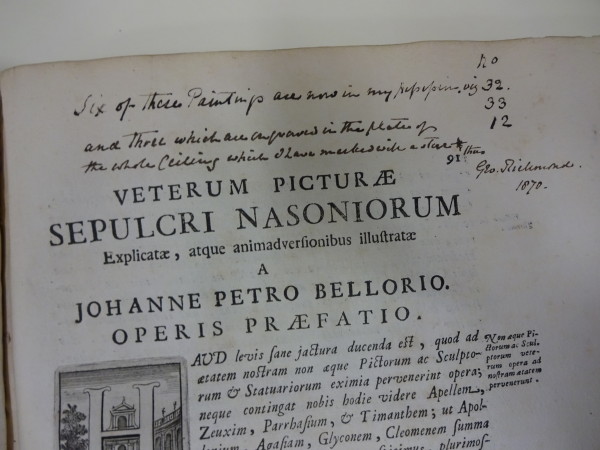 No
Six of these Paintings are now in my possession viz 32.
33
and three which are engraved in the plates of 12
the whole Ceiling which I have marked with a star * thus
Geo. Richmond.
1870.
VETERUM PICTURÆ
SEPULCRI NASONIORUM
Explicatæ, atque animadversionibus illustratæ
A
JOHANNE PETRO BELLORIO.
OPERIS PRÆFATIO.
AUD levis sane jactura ducenda est, quod ad
ætatem nostram non æque Pictorum ac Sculpto-
rum & Statuariorum eximia pervenerint opera;
neque contingat nobis hodie videre Apellem,
Zeuxim, Parrhasium, & Timanthem; ut Apol-
lonium, Agasiam, Glyconem, Cleomenem summa
plurimos-
Non æque Pi-
ctorum ac Scul-
ptorum vete-
rum opera ad
nostram ætatem
pervenerunt.